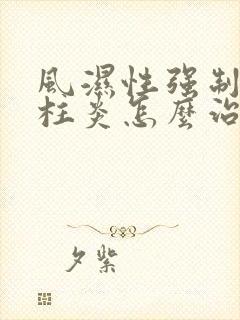 風濕性强制
柱炎怎麼治
夕紫